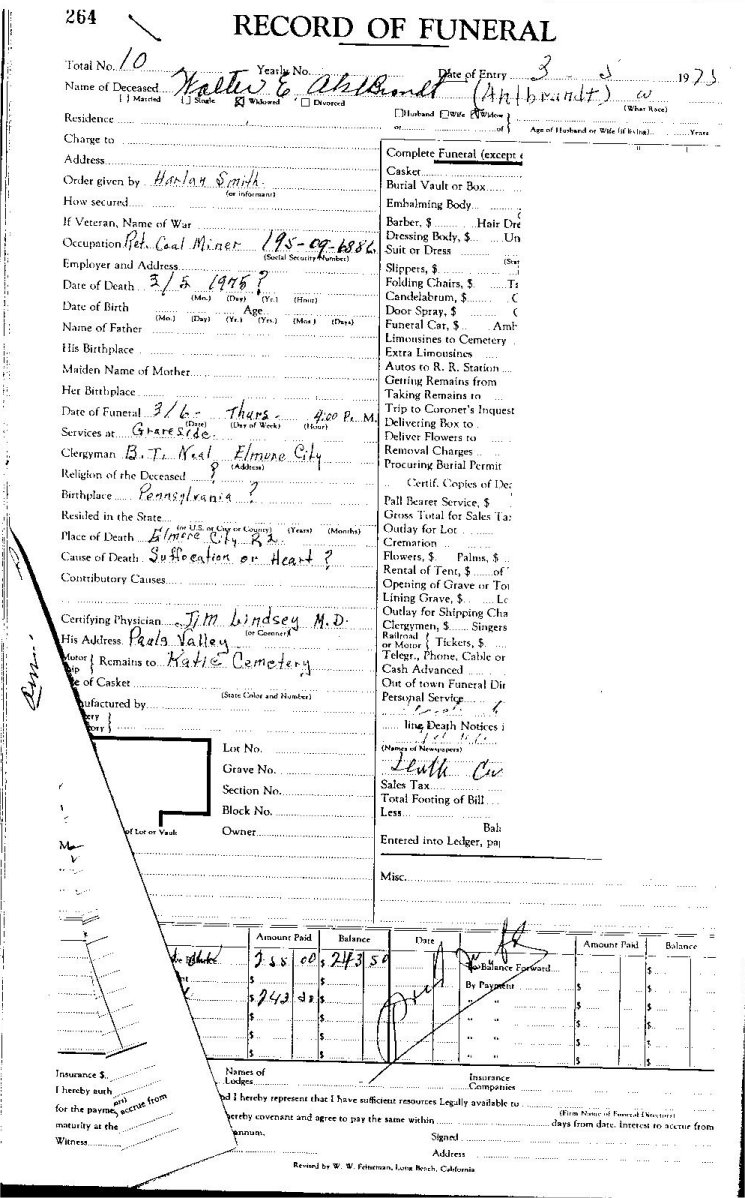 264
RECORD OF FUNERAL
Total No. 10 Yearly No. Date of Entry 3 - 5 1975
Name of Deceased Walter E Ahlbrandt (Ahlbrandt) W
[ ] Married [ ] Single [X] Widowed [ ] Divorced (What Race)
Residence
Husband Wife Widow
or of Age of Husband or Wife (if living) Years
Charge to
Address
Order given by Harlan Smith
(or informant)
How secured
If Veteran, Name of War
Occupation Ret. Coal Miner 195-09-6886
(Social Security Number)
Employer and Address
Date of Death 3/5 1975 ?
(Mo.) (Day) (Yr.) (Hour)
Date of Birth Age
(Mo.) (Day) (Yr.) (Yrs.) (Mos.) (Days)
Name of Father
His Birthplace
Maiden Name of Mother
Her Birthplace
Date of Funeral 3/6 - Thurs - 4:00 P. M.
(Date) (Day of Week) (Hour)
Services at Graveside
Clergyman B. T. Neal Elmore City
(Address)
Religion of the Deceased ?
Birthplace Pennsylvania ?
Resided in the State
(or U.S. or City or County) (Years) (Months)
Place of Death Elmore City R 2
Cause of Death Suffocation or Heart ?
Contributory Causes
Certifying Physician Jim Lindsey M.D.
(or Coroner)
His Address Pauls Valley
Motor
Ship Remains to Katie Cemetery
of Casket
(State Color and Number)
ufactured by
Lot No.
Grave No.
Section No.
Block No.
of Lot or Vault Owner
Complete Funeral (except
Casket
Burial Vault or Box
Embalming Body
Barber, $ Hair Dre
Dressing Body, $ Un
Suit or Dress
(Stat
Slippers, $
Folding Chairs, $ Ta
Candelabrum, $ C
Door Spray, $
Funeral Car, $ Amb
Limousines to Cemetery
Extra Limousines
Autos to R. R. Station
Getting Remains from
Taking Remains to
Trip to Coroner's Inquest
Delivering Box to
Deliver Flowers to
Removal Charges
Procuring Burial Permit
Certif. Copies of De
Pall Bearer Service, $
Gross Total for Sales Ta
Outlay for Lot
Cremation
Flowers, $ Palms, $
Rental of Tent, $ of
Opening of Grave or To
Lining Grave, $ Le
Outlay for Shipping Cha
Clergymen, $ Singers
Railroad
or Motor Tickets, $
Telegr., Phone, Cable or
Cash Advanced
Out of town Funeral Dir
Personal Service
line Death Notices i
(Names of Newspapers)
Death
Sales Tax
Total Footing of Bill
Less
Bala
Entered into Ledger, pa
Misc.
Amount Paid Balance Date Amount Paid Balance
00 $ 243 50 Balance Forward $
$ $ By Payment $ $
$ 243 $ " " $ $
$ $ " " $ $
$ $ " " $ $
$ $ " " $ $
Insurance $ Names of Lodges Insurance Companies
I hereby auth
nd I hereby represent that I have sufficient resources Legally available to
for the payme accrue from (Firm Name of Funeral Directors)
maturity at the
hereby covenant and agree to pay the same within days from date. Interest to accrue from
annum.
Witness
Signed
Address
Revised by W. W. Feineman, Long Beach, California